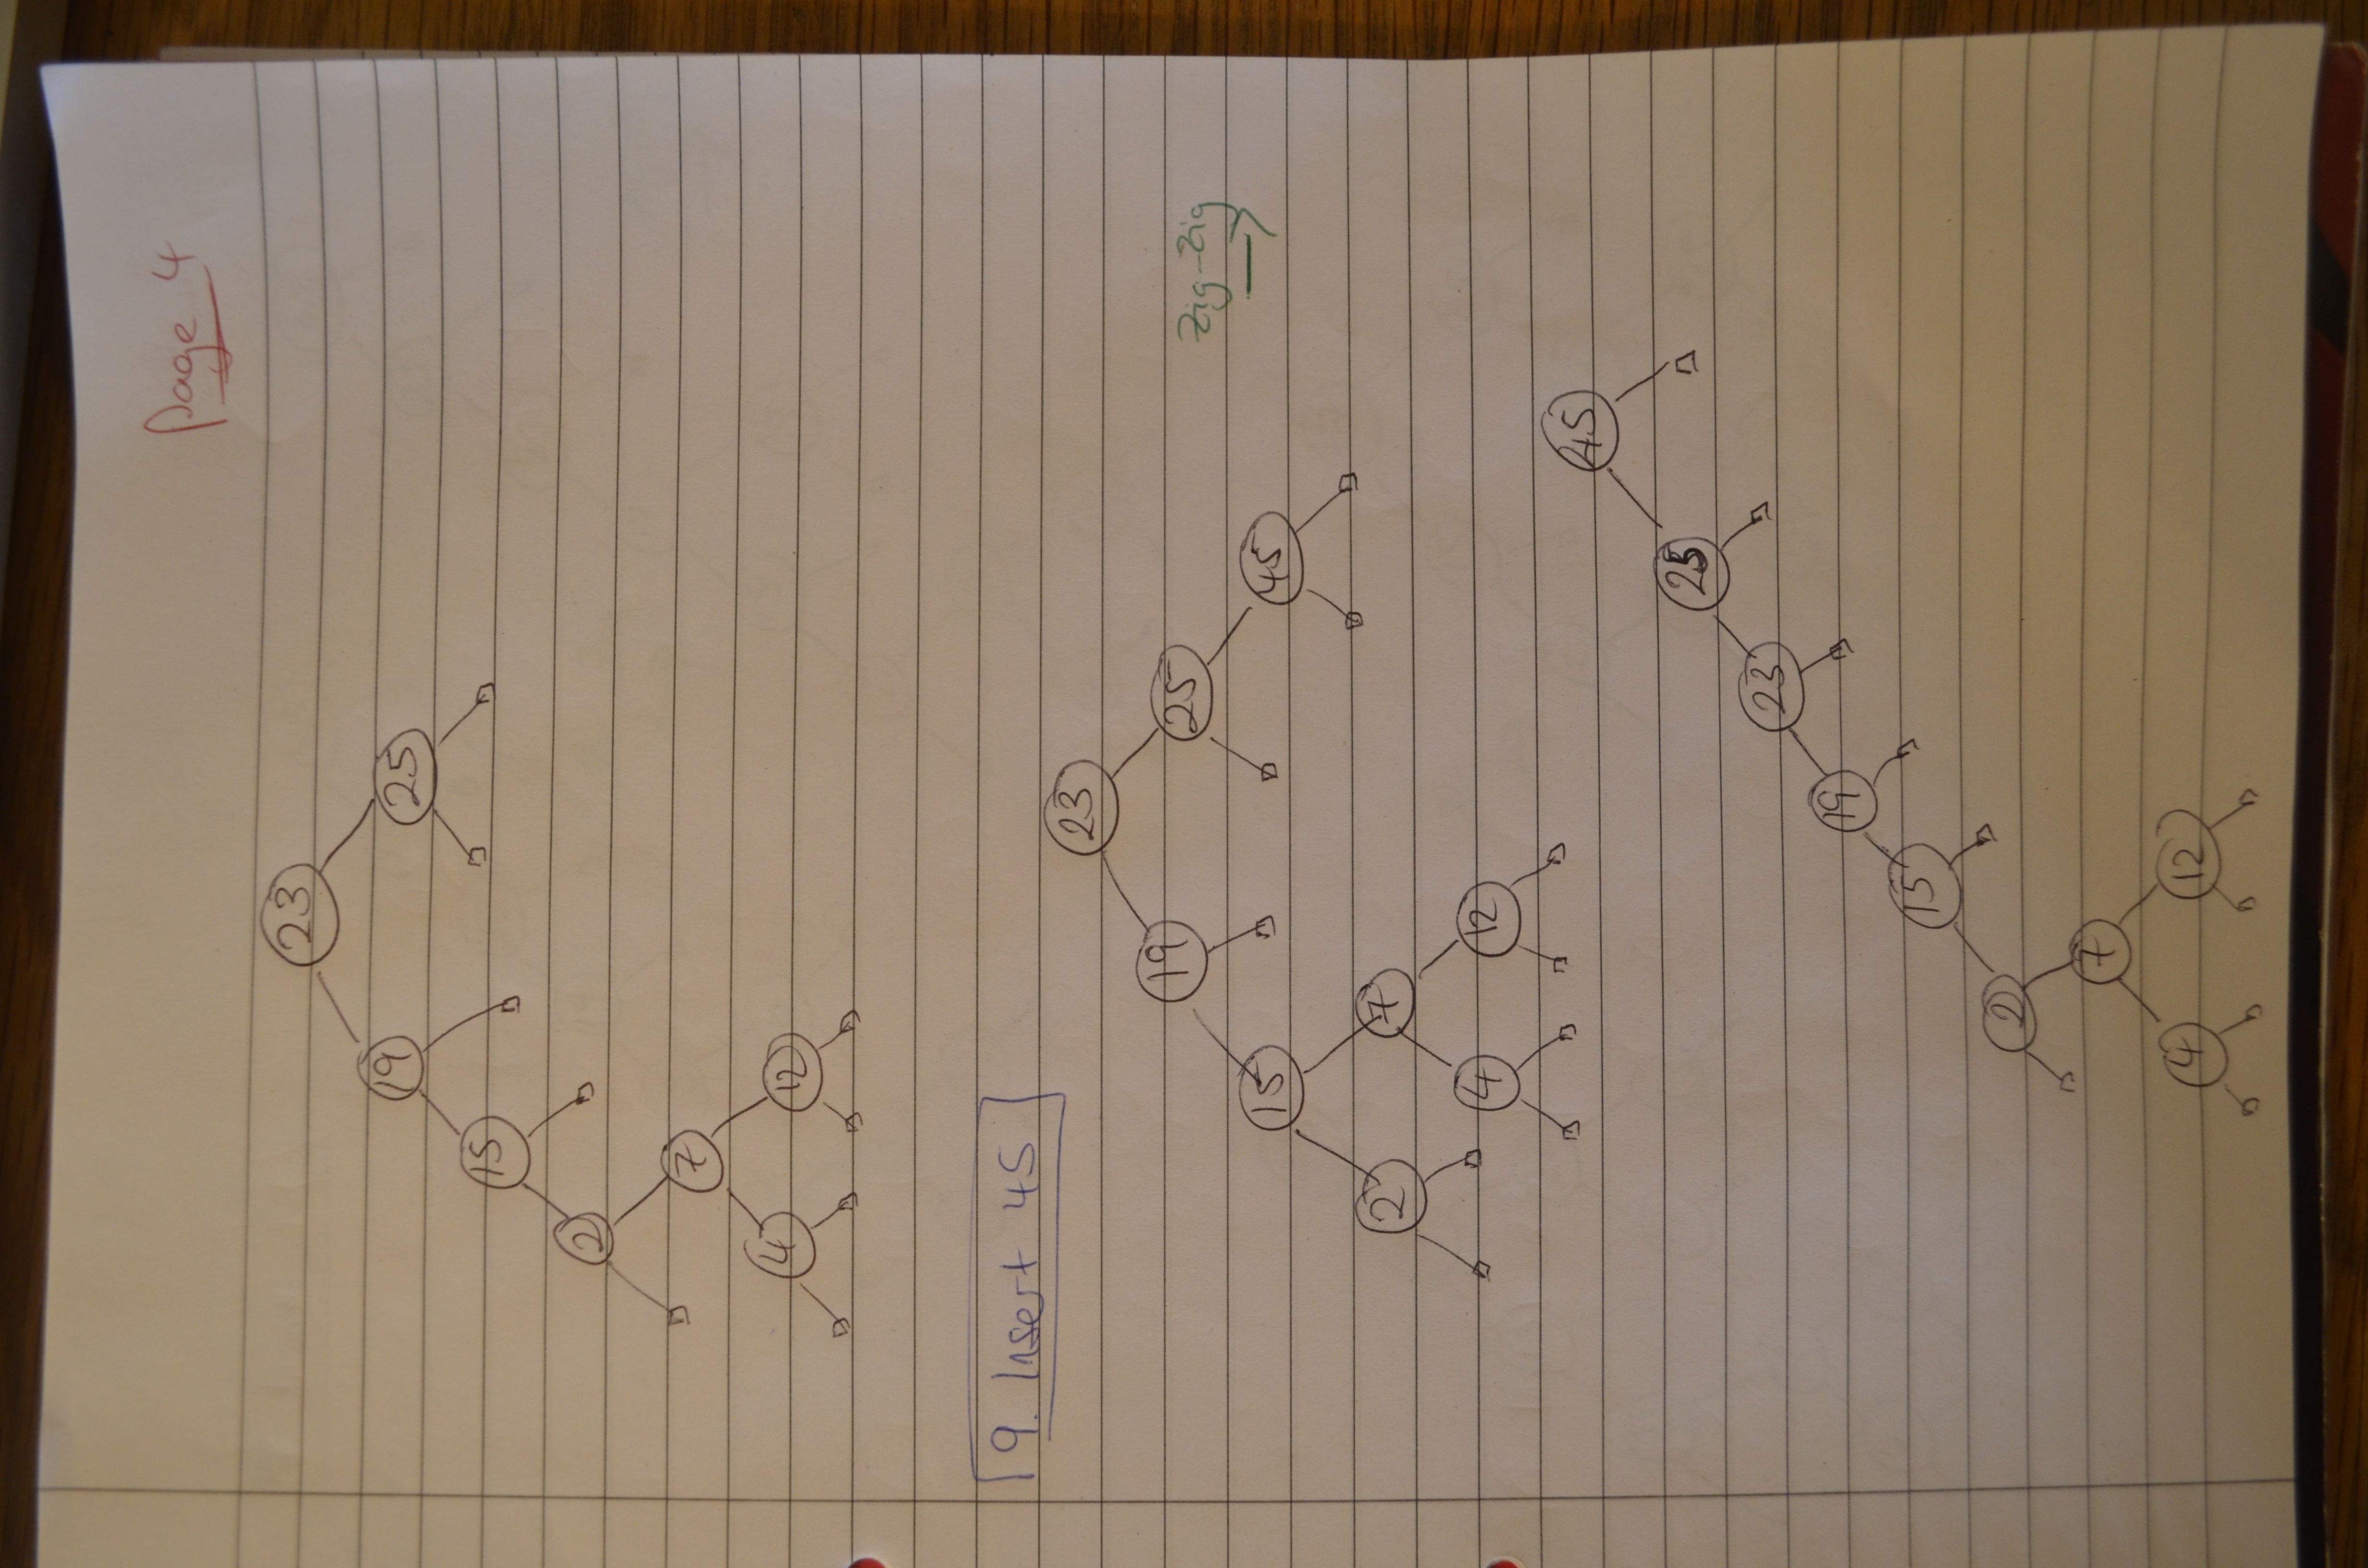 Page 4
23
19 25
15
2
7
4 12
9. Insert 45
23
19 25
Zig-Zig
15 45
2 7
4 12
45
25
23
19
15
2
7
4 12